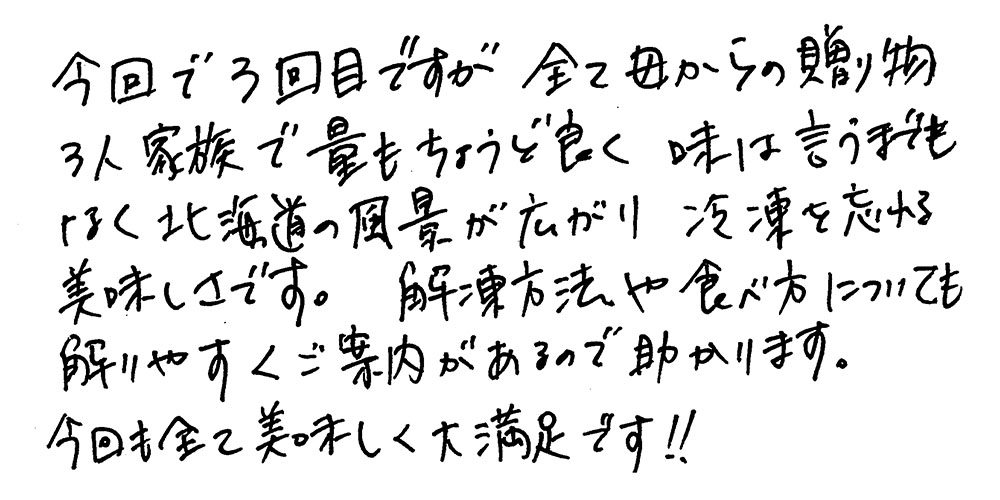 今回で3回目ですが 全て母からの贈り物
3人家族で量もちょうど良く 味は言うまでも
なく北海道の風景が広がり 冷凍を忘れる
美味しさです。 解凍方法や食べ方についても
解りやすくご案内があるので助かります。
今回も全て美味しく大満足です!!